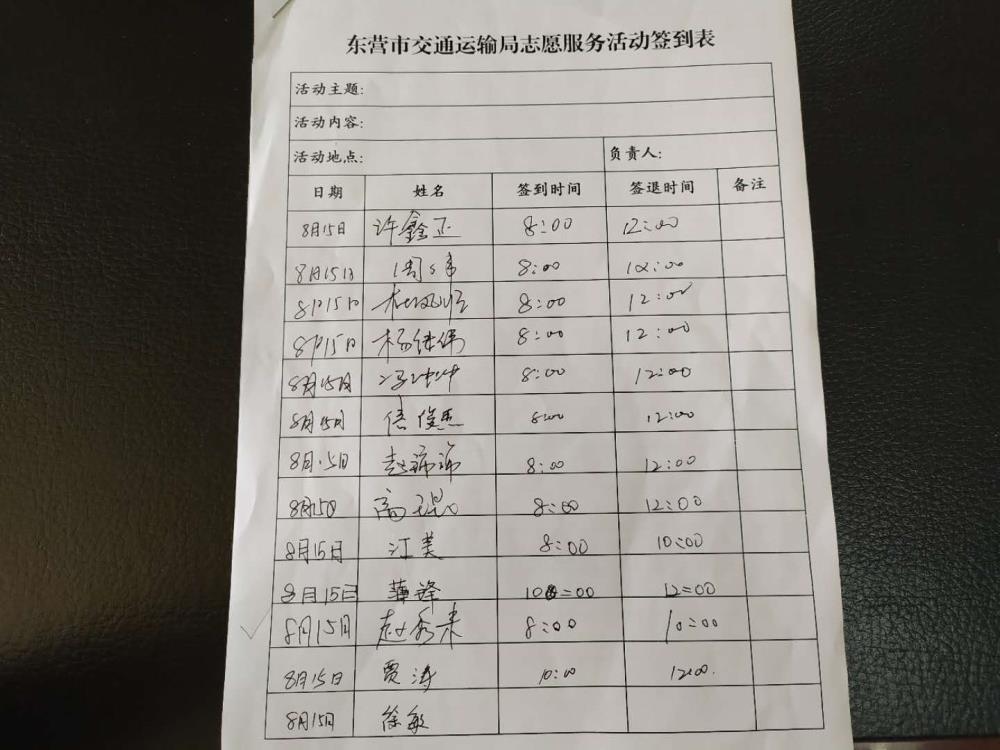 东营市交通运输局志愿服务活动签到表
活动主题:
活动内容:
活动地点: 负责人:
日期 姓名 签到时间 签退时间 备注
8月15日 许鑫正 8:00 12:00
8月15日 8:00 12:00
8月15日 8:00 12:00
8月15日 杨继伟 8:00 12:00
8月15日 8:00 12:00
8月15日 8:00 12:00
8月15日 8:00 12:00
8月15日 高琨 8:00 12:00
8月15日 江美 8:00 10:00
8月15日 10:00 12:00
8月15日 赵秀来 8:00 10:00
8月15日 贾涛 10:00 12:00.
8月15日 徐敏